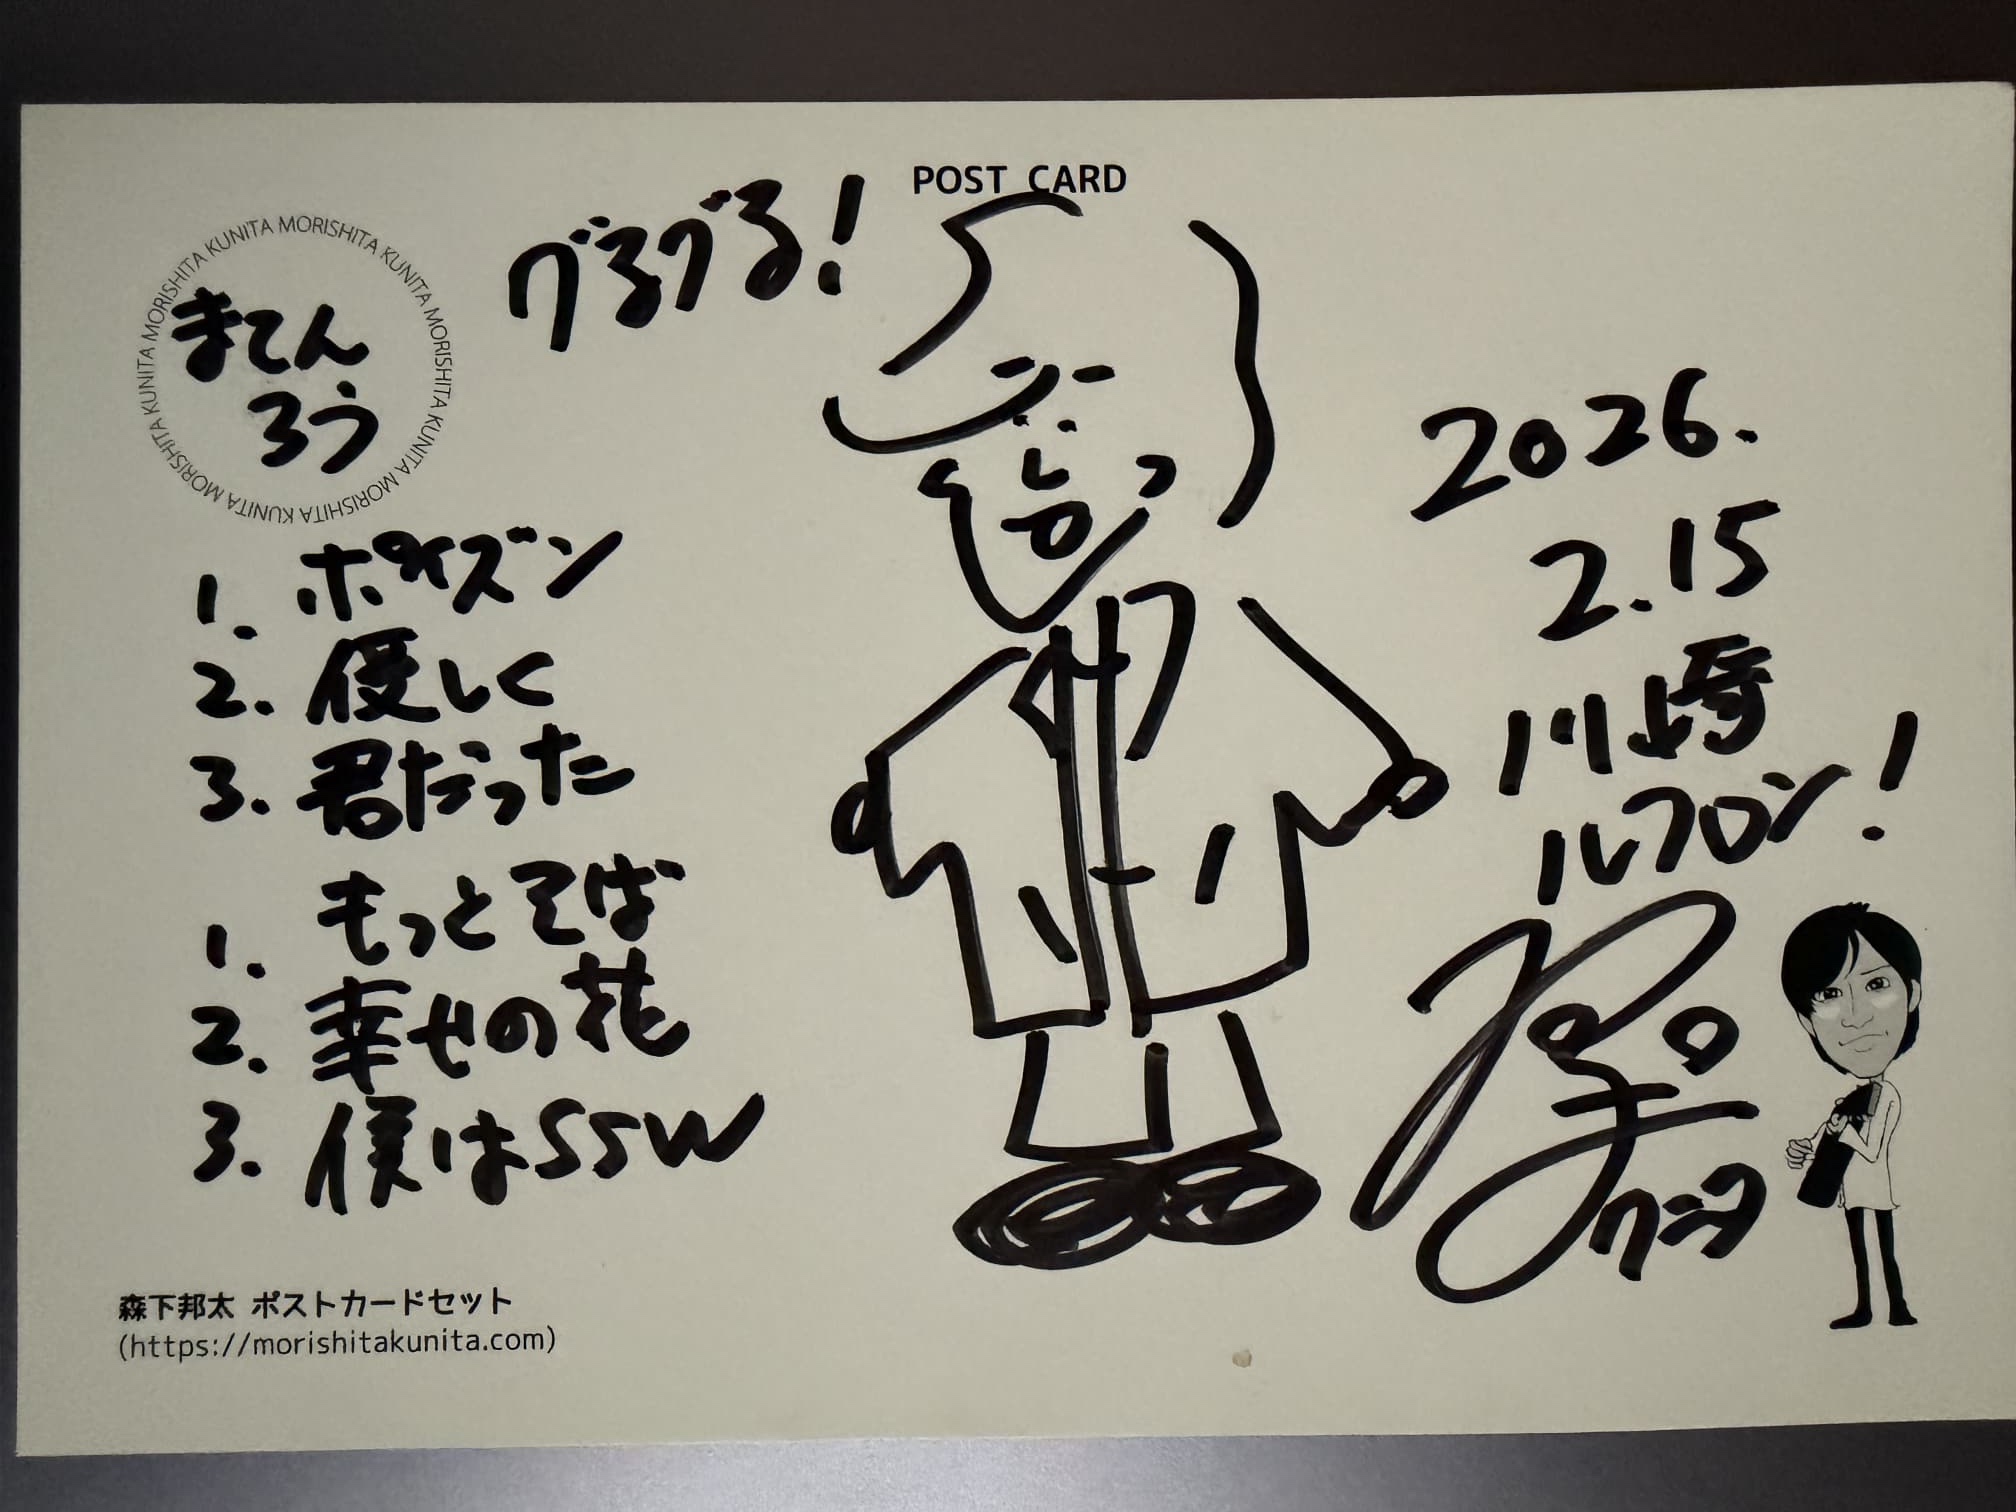 POST CARD
MORISHITA KUNITA MORISHITA KUNITA MORISHITA KUNITA MORISHITA KUNITA MORISHITA KUNITA
まてん
ろう
グるグる!
1. ポイズン
2. 優しく
3. 君だった
1. もっとそば
2. 幸せの花
3. 僕はSSW
2026.
2.15
川崎
ルフロン!
クニタ
森下邦太 ポストカードセット
(https://morishitakunita.com)